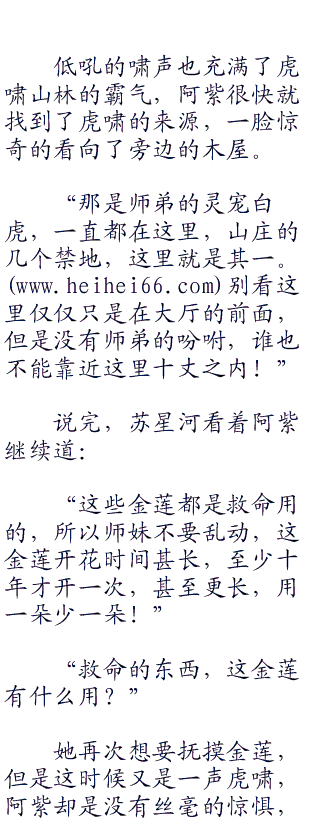 低吼的啸声也充满了虎
啸山林的霸气，阿紫很快就
找到了虎啸的来源，一脸惊
奇的看向了旁边的木屋。
“那是师弟的灵宠白
虎，一直都在这里，山庄的
几个禁地，这里就是其一。
(www.heihei66.com)别看这
里仅仅只是在大厅的前面，
但是没有师弟的吩咐，谁也
不能靠近这里十丈之内！”
说完，苏星河看着阿紫
继续道：
“这些金莲都是救命用
的，所以师妹不要乱动，这
金莲开花时间甚长，至少十
年才开一次，甚至更长，用
一朵少一朵！”
“救命的东西，这金莲
有什么用？”
她再次想要抚摸金莲，
但是这时候又是一声虎啸，
阿紫却是没有丝毫的惊惧，